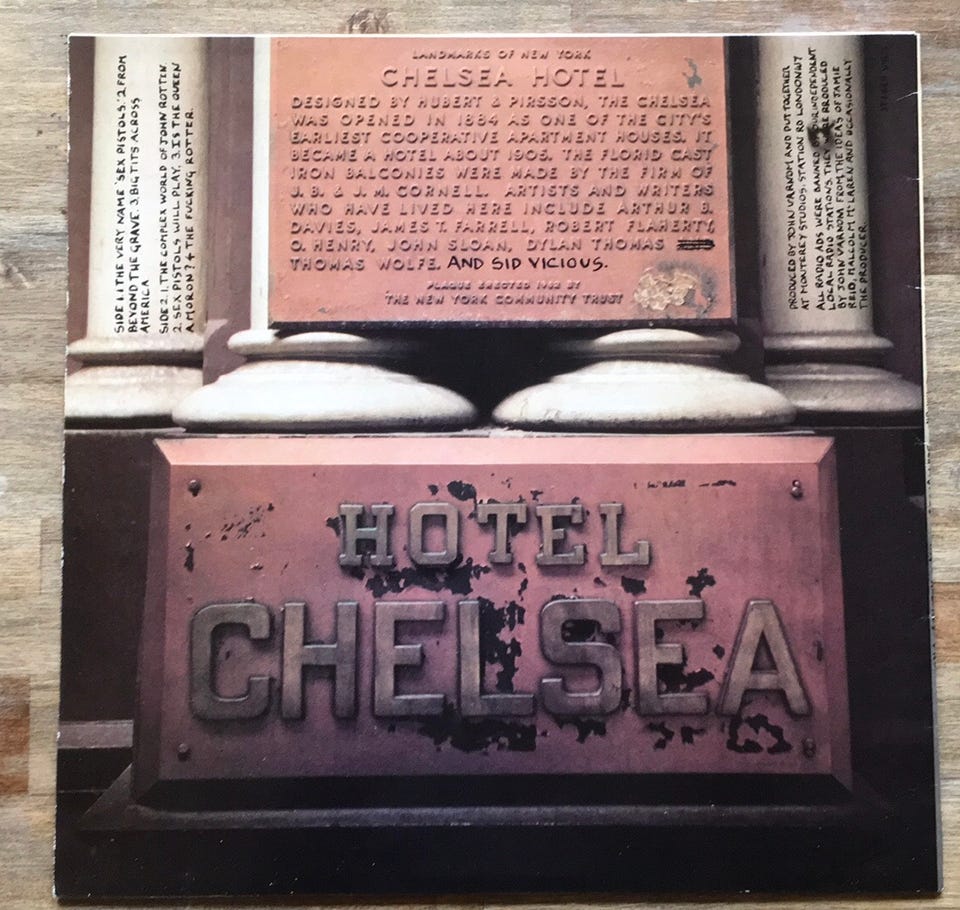 SIDE 1. 1. THE VERY NAME 'SEX PISTOLS'. 2 FROM
BEYOND THE GRAVE. 3. BIG TITS ACROSS
AMERICA
SIDE 2. 1. THE COMPLEX WORLD OF JOHN ROTTEN.
2. SEX PISTOLS WILL PLAY, 3. IS THE QUEEN
A MORON? 4 THE FUCKING ROTTER.
LANDMARKS OF NEW YORK
CHELSEA HOTEL
DESIGNED BY HUBERT & PIRSSON, THE CHELSEA
WAS OPENED IN 1884 AS ONE OF THE CITY'S
EARLIEST COOPERATIVE APARTMENT HOUSES. IT
BECAME A HOTEL ABOUT 1905. THE FLORID CAST
IRON BALCONIES WERE MADE BY THE FIRM OF
J. B. & J. M. CORNELL. ARTISTS AND WRITERS
WHO HAVE LIVED HERE INCLUDE ARTHUR B.
DAVIES, JAMES T. FARRELL, ROBERT FLAHERTY,
O. HENRY, JOHN SLOAN, DYLAN THOMAS
THOMAS WOLFE. AND SID VICIOUS.
PLAQUE ERECTED 1962 BY
THE NEW YORK COMMUNITY TRUST
PRODUCED BY JOHN VARNOM AND PUT TOGETHER
AT MONTEREY STUDIOS. STATION RD LONDON N17
ALL RADIO ADS WERE BANNED BY OUR INDEPENDENT
LOCAL RADIO STATIONS. THEY WERE PRODUCED
BY JOHN VARNOM FROM THE IDEAS OF JAMIE
REID, MALCOLM McLAREN AND OCCASIONALLY
THE PRODUCER.
HOTEL
CHELSEA